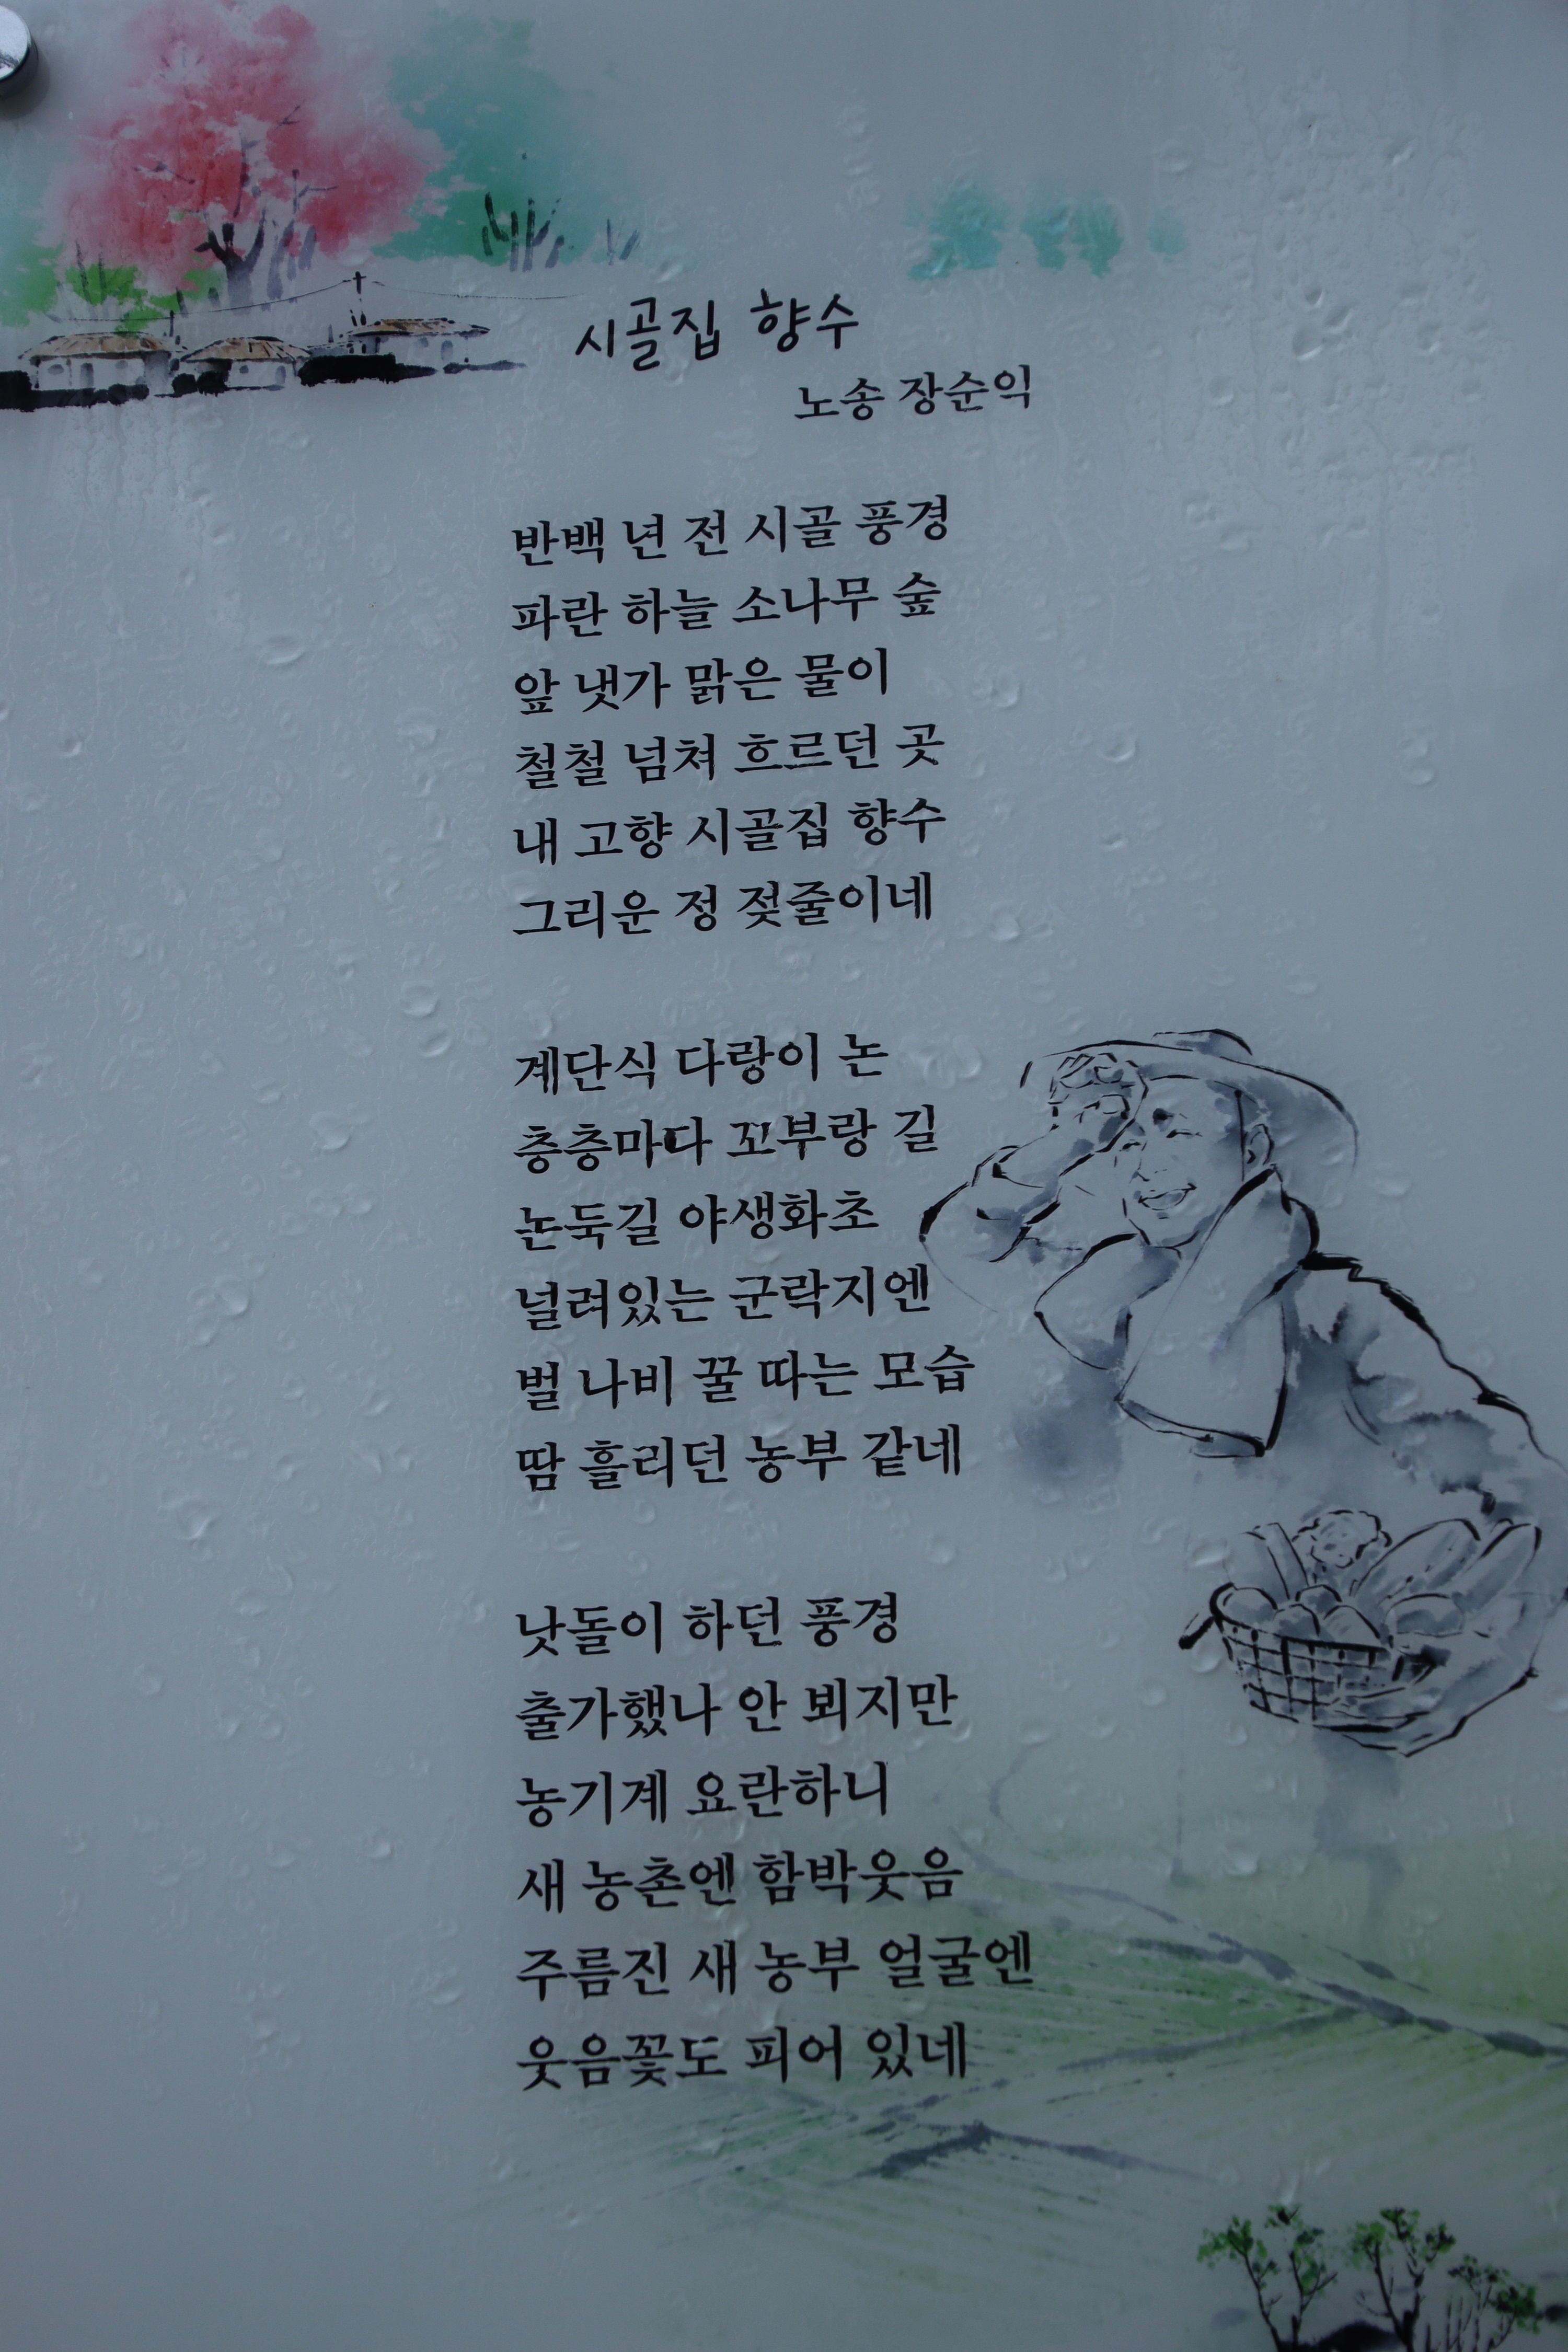 시골집 향수
노송 장순익
반백 년 전 시골 풍경
파란 하늘 소나무 숲
앞 냇가 맑은 물이
철철 넘쳐 흐르던 곳
내 고향 시골집 향수
그리운 정 젖줄이네
계단식 다랑이 논
층층마다 꼬부랑 길
논둑길 야생화초
널려있는 군락지엔
벌 나비 꿀 따는 모습
땀 흘리던 농부 같네
낫돌이 하던 풍경
출가했나 안 뵈지만
농기계 요란하니
새 농촌엔 함박웃음
주름진 새 농부 얼굴엔
웃음꽃도 피어 있네